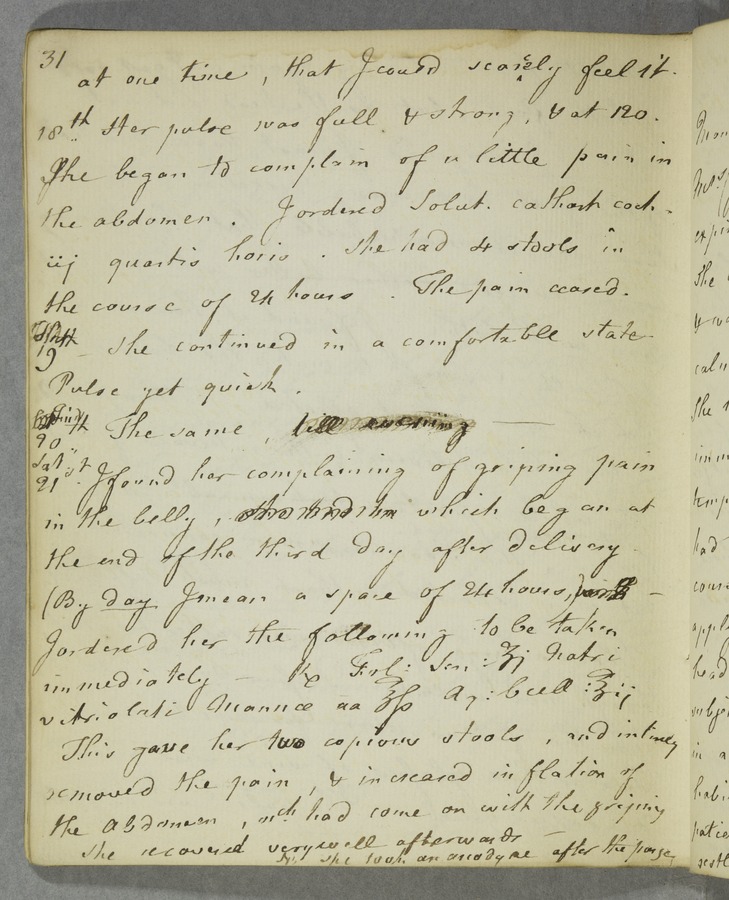 31
at one time, that I coud scarcely feel it.
18th Her pulse was full & strong, & at 120.
She began to complain of a little pain in
the abdomen. I ordered Solut. cathart coch.
iij quartis horis. She had 4 stools in
the course of 24 hours. The pain ceased.
19 She continued in a comfortable state
Pulse yet quick.
20th The same, till evening —
Sat. 21st I found her complaining of griping pain
in the belly, which began at
the end of the third day after delivery.
(By day I mean a space of 24 hours,)
I ordered her the following to be taken
immediately — Rx Fol: Sen: ʒj Natri
vitriolati Mannæ aa ʒß Aq: bull: ℥ij
This gave her two copious stools, and intirely
removed the pain, & increased inflation of
the abdomen, wch had come on with the griping
She recovered very well afterwards —
she took an anodyne after the purge